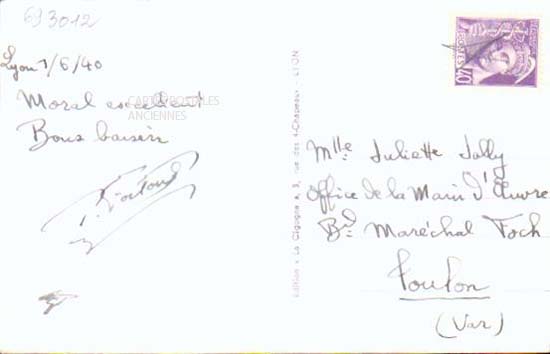 693012
Lyon 1/6/40
Moral excellent
Bons baisers
CARTES POSTALES
ANCIENNES
Edition « La Cigogne », 3, rue des 4-Chapeaux - LYON
POSTES
40
Mlle Juliette Jally
Office de la Main d'Œuvre
Bd Maréchal Foch
Toulon
(Var)